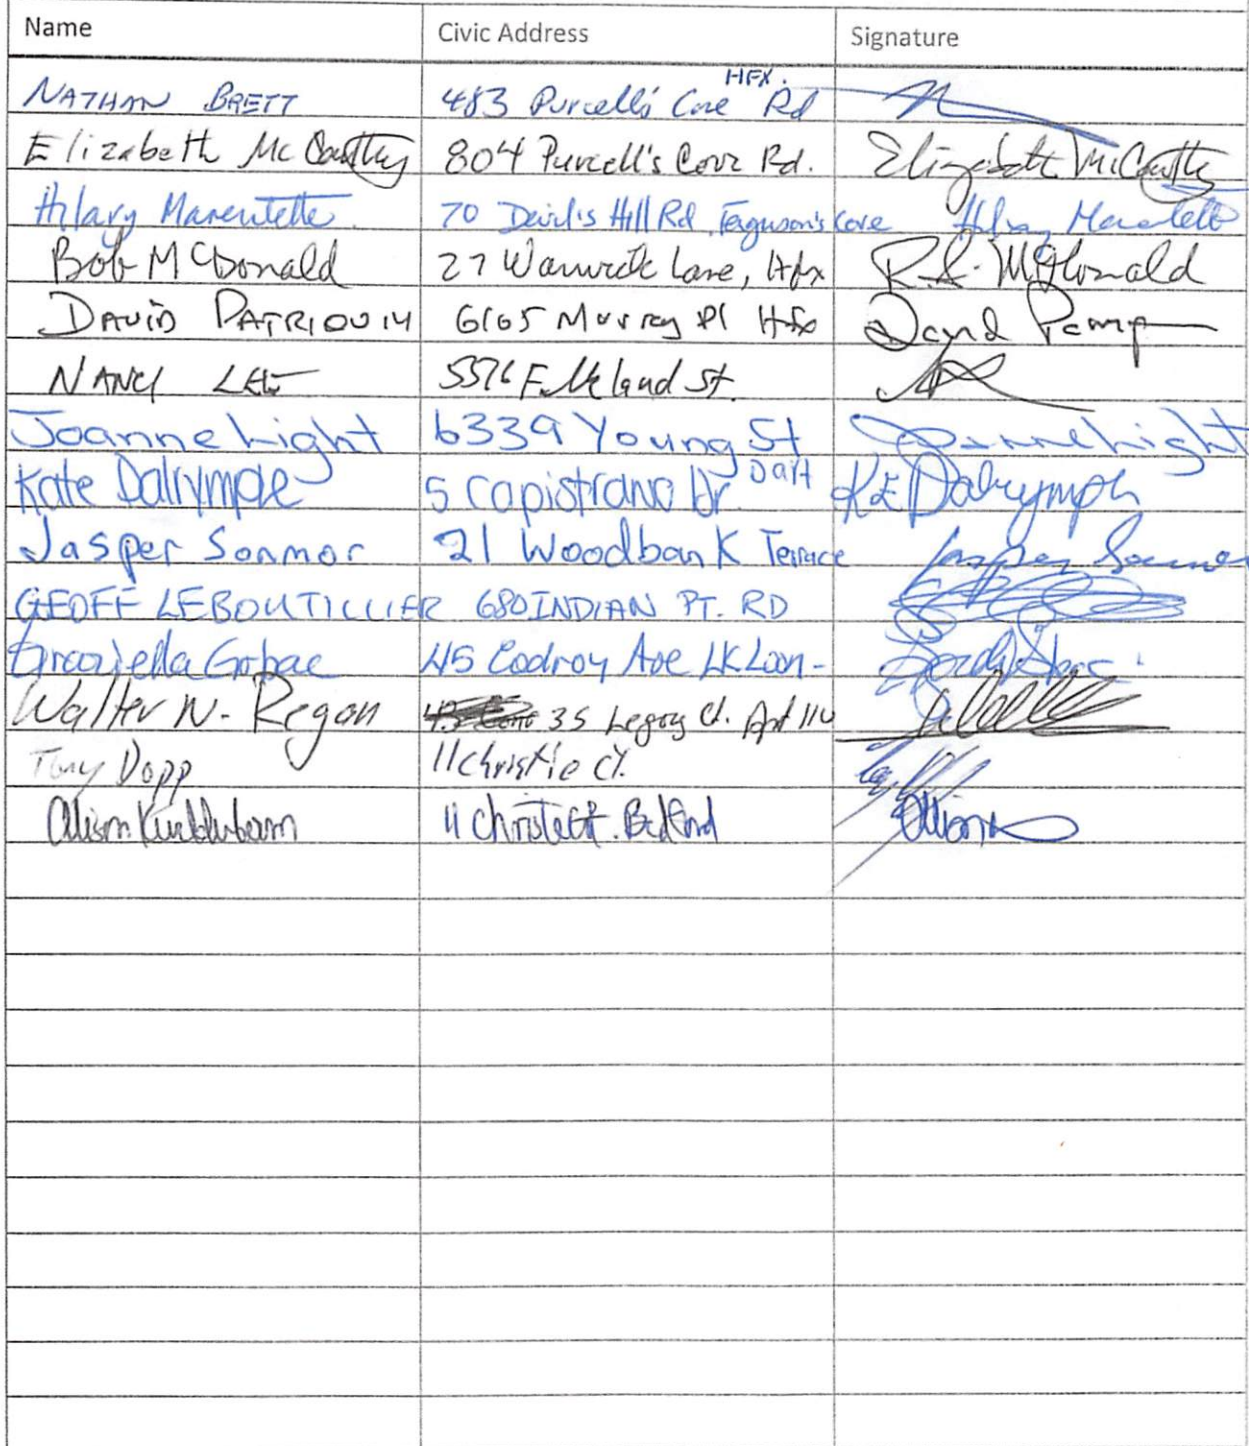 Name Civic Address Signature
NATHAN BRETT 483 Purcell's Cove Rd HFX.
Elizabeth McCarthy 804 Purcell's Cove Rd. Elizabeth McCarthy
Hilary Marentette 70 Devil's Hill Rd Ferguson's Cove Hilary Marentette
Bob McDonald 27 Warwick Lane, Hfx R.A. McDonald
DAVID 6165 Murray Pl Hfx David
NANCY 5576 Falkland St.
Joanne Light 6339 Young St Joanne Light
Kate Dalrymple 5 Capistrano Dr Dart KE Dalrymple
Jasper Sonmor 21 Woodbank Terrace Jasper Sonmor
GEOFF LEBOUTILLIER 680 INDIAN PT. RD
Graziella Grbac 45 Codroy Ave LK Loon-
Walter N. Regan 35 Legacy Ct. Apt 110
Tony Dopp 11 Christie Ct.
Alison 11 Christie Ct. Bedford Alison